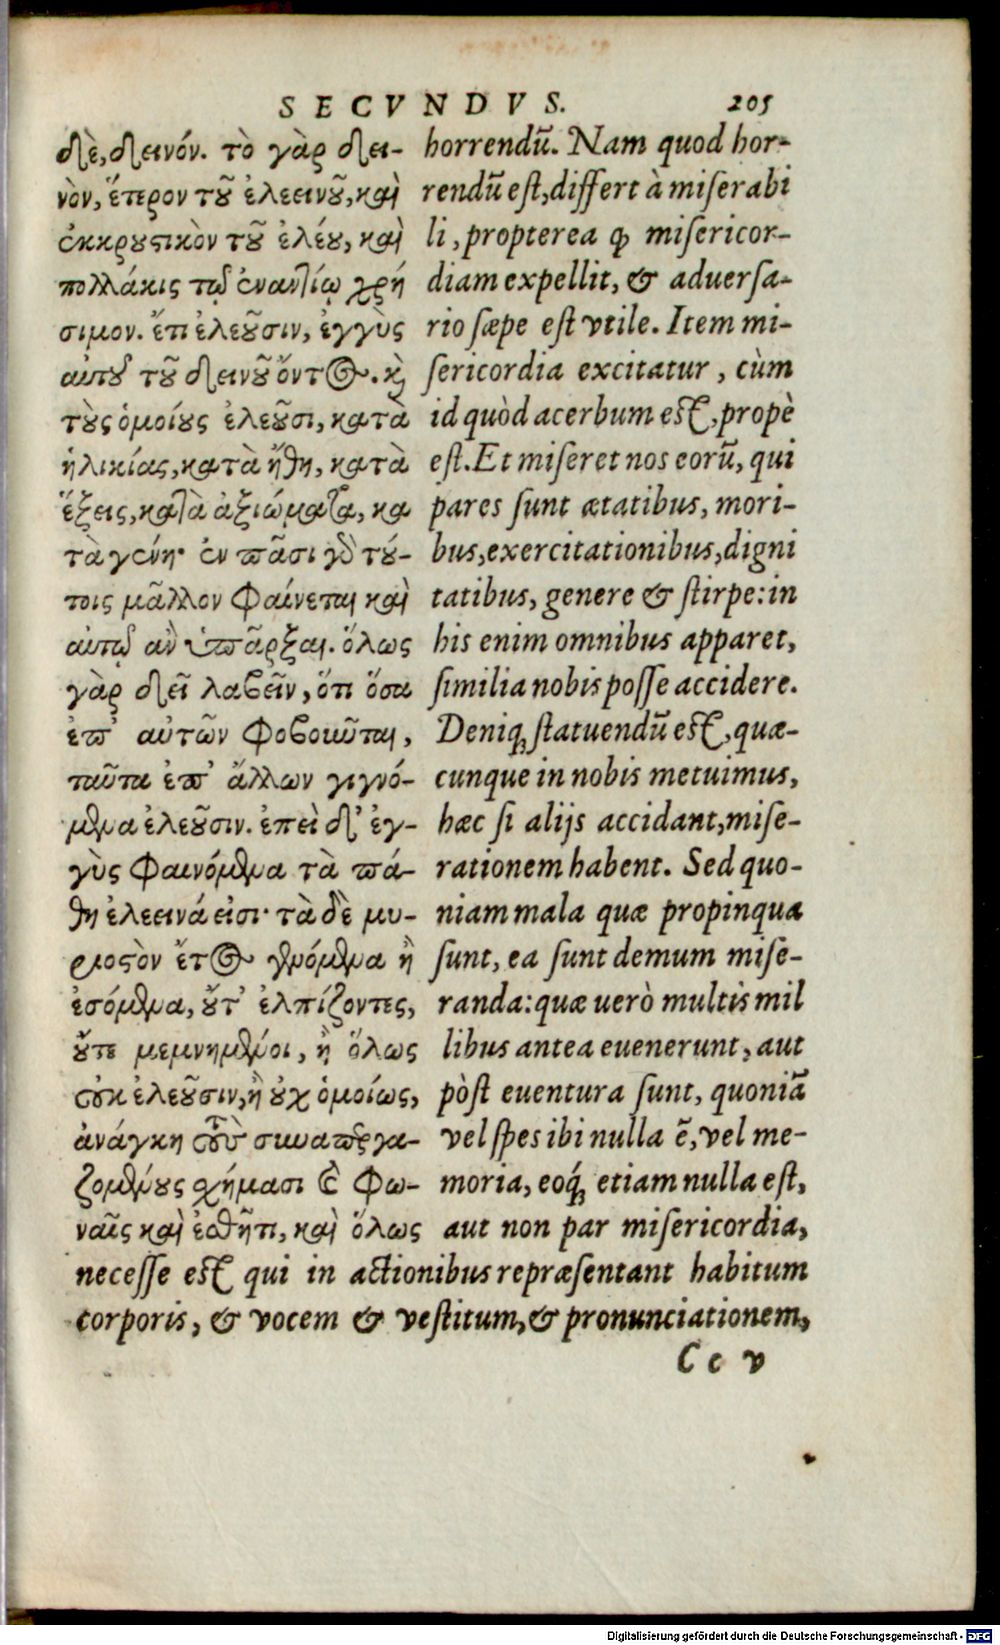 SECVNDVS. 205
δὲ, δεινόν. τὸ γὰρ δει-
νὸν, ἕτερον τοῦ ἐλεεινοῦ, καὶ
ἐκκρουστικὸν τοῦ ἐλέου, καὶ
πολλάκις τῷ ἐναντίῳ χρή
σιμον. ἔτι ἐλεοῦσιν, ἐγγὺς
αὐτοῦ τοῦ δεινοῦ ὄντος. κ̀
τοὺς ὁμοίους ἐλεοῦσι, κατὰ
ἡλικίας, κατὰ ἤθη, κατὰ
ἕξεις, κατὰ ἀξιώματα, κα
τὰ γένη· ἐν πᾶσι γὸ τού-
τοις μᾶλλον φαίνεται καὶ
αὐτῷ ἂν ὑπᾶρξαι. ὅλως
γὰρ δεῖ λαβεῖν, ὅτι ὅσα
ἐπ' αὑτῶν φοβοῦνται,
ταῦτα ἐπ' ἄλλων γιγνό-
μενα ἐλεοῦσιν. ἐπεὶ δ' ἐγ-
γὺς φαινόμενα τὰ πά-
θη ἐλεεινά εἰσι· τὰ δὲ μυ-
ριοστὸν ἔτος γενόμενα ἢ
ἐσόμενα, οὔτ' ἐλπίζοντες,
οὔτε μεμνημένοι, ἢ ὅλως
οὐκ ἐλεοῦσιν, ἢ οὐχ ὁμοίως,
ἀνάγκη τοὺς συναπεργα-
ζομένους σχήμασι καὶ φω-
ναῖς καὶ ἐσθῆτι, καὶ ὅλως
horrendū. Nam quod hor-
rendū est, differt à miserabi
li, propterea ꝙ misericor-
diam expellit, & aduersa-
rio sæpe est vtile. Item mi-
sericordia excitatur, cùm
id quòd acerbum est, propè
est. Et miseret nos eorū, qui
pares sunt ætatibus, mori-
bus, exercitationibus, digni
tatibus, genere & stirpe: in
his enim omnibus apparet,
similia nobis posse accidere.
Deniq; statuendū est, quæ-
cunque in nobis metuimus,
hæc si alijs accidant, mise-
rationem habent. Sed quo-
niam mala quæ propinqua
sunt, ea sunt demum mise-
randa: quæ uerò multis mil
libus antea euenerunt, aut
pòst euentura sunt, quoniā
vel spes ibi nulla ē, vel me-
moria, eoq́; etiam nulla est,
aut non par misericordia,
necesse est qui in actionibus repræsentant habitum
corporis, & vocem & vestitum, & pronunciationem,
Cc v
Digitalisierung gefördert durch die Deutsche Forschungsgemeinschaft - DFG